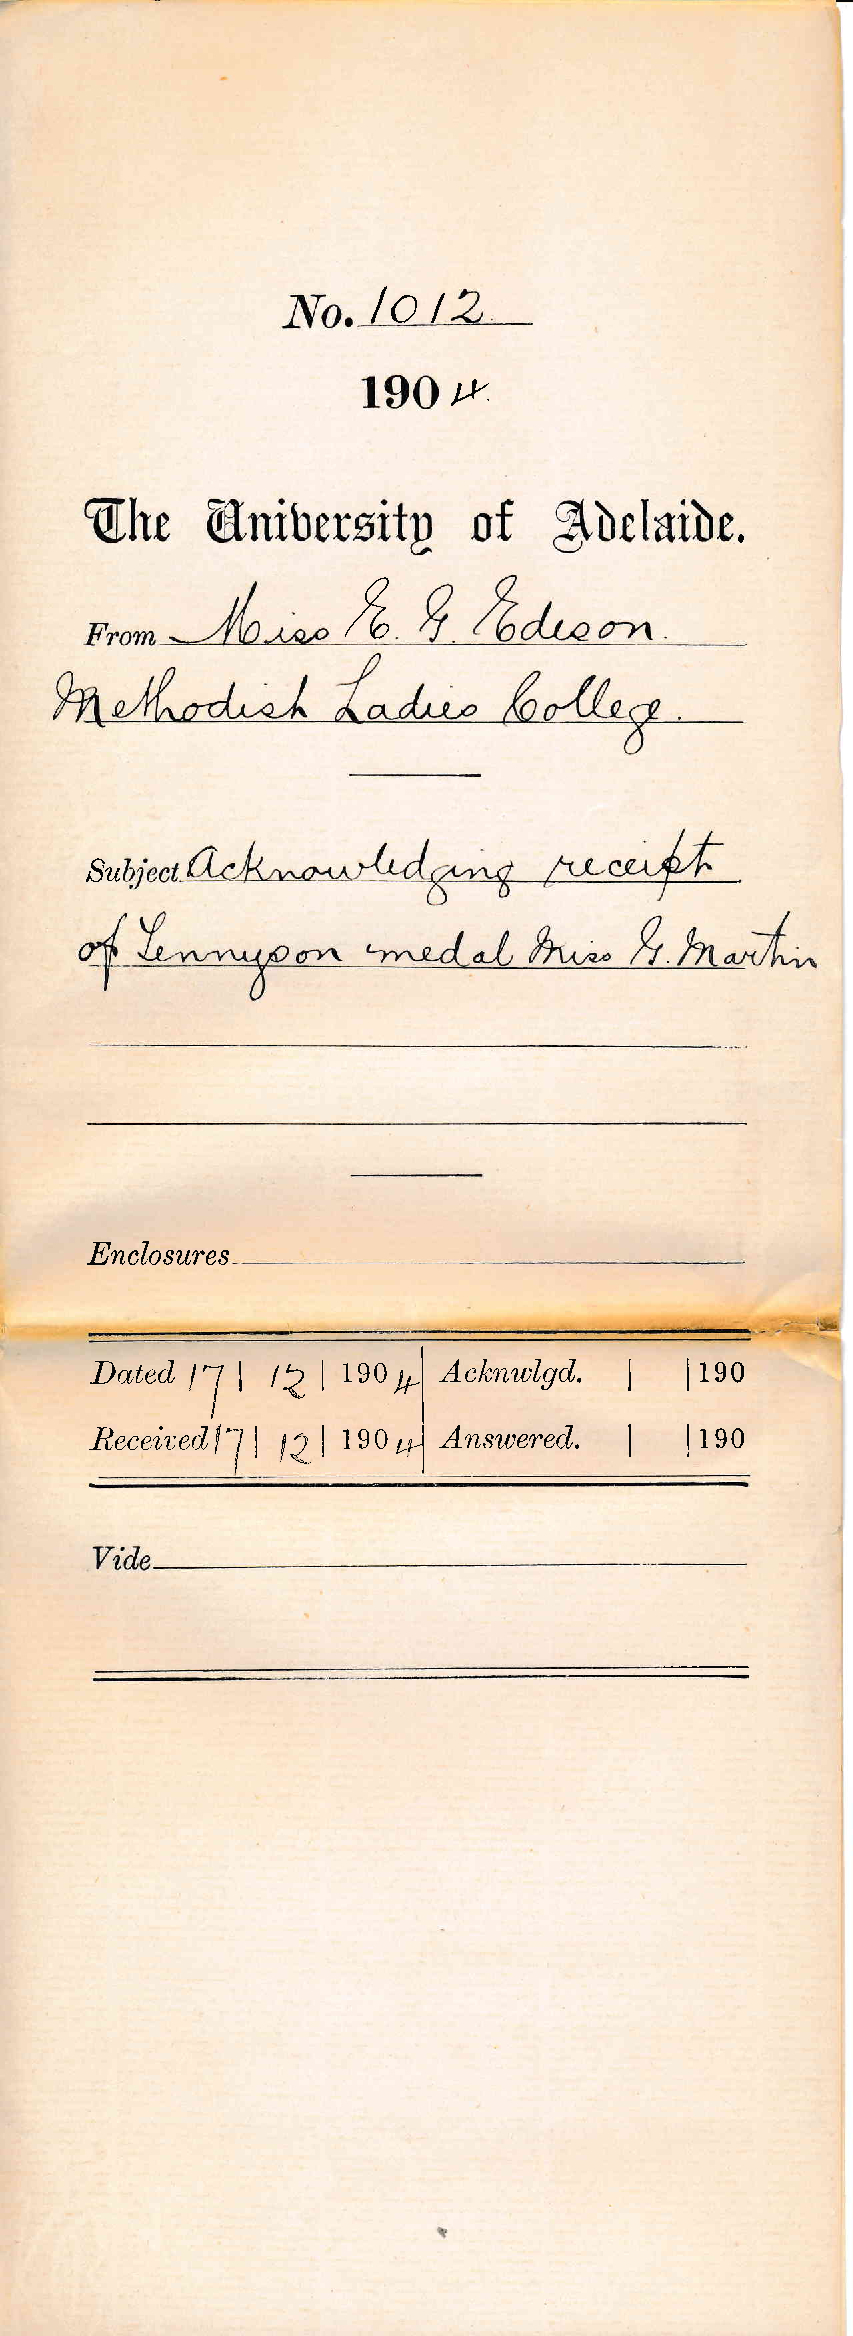 No. 1012.
1904.
The University of Adelaide.
From Miss E. G. Edeson.
Methodist Ladies College.
Subject Acknowledging receipt
of Tennyson medal Miss G. Martin
Enclosures
Dated 17 | 12 | 1904 Acknwlgd. | | 190
Received 17 | 12 | 1904 Answered. | | 190
Vide